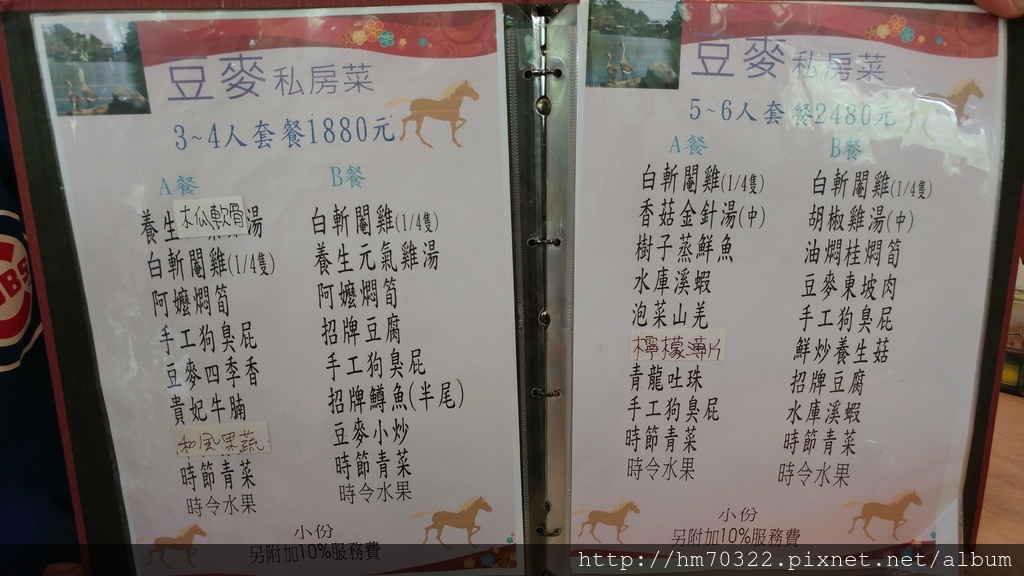 豆麥私房菜
3~4人套餐1880元
A餐
養生木瓜軟骨湯
白斬閹雞(1/4隻)
阿嬤燜筍
手工狗臭屁
豆麥四季香
貴妃牛腩
和風果蔬
時節青菜
時令水果
B餐
白斬閹雞(1/4隻)
養生元氣雞湯
阿嬤燜筍
招牌豆腐
手工狗臭屁
招牌鱒魚(半尾)
豆麥小炒
時節青菜
時令水果
小份
另附加10%服務費
豆麥私房菜
5~6人套餐2480元
A餐
白斬閹雞(1/4隻)
香菇金針湯(中)
樹子蒸鮮魚
水庫溪蝦
泡菜山羌
檸檬薄片
青龍吐珠
手工狗臭屁
時節青菜
時令水果
B餐
白斬閹雞(1/4隻)
胡椒雞湯(中)
油燜桂燜筍
豆麥東坡肉
手工狗臭屁
鮮炒養生菇
招牌豆腐
水庫溪蝦
時節青菜
時令水果
小份
另附加10%服務費
http://hm70322.pixnet.net/album